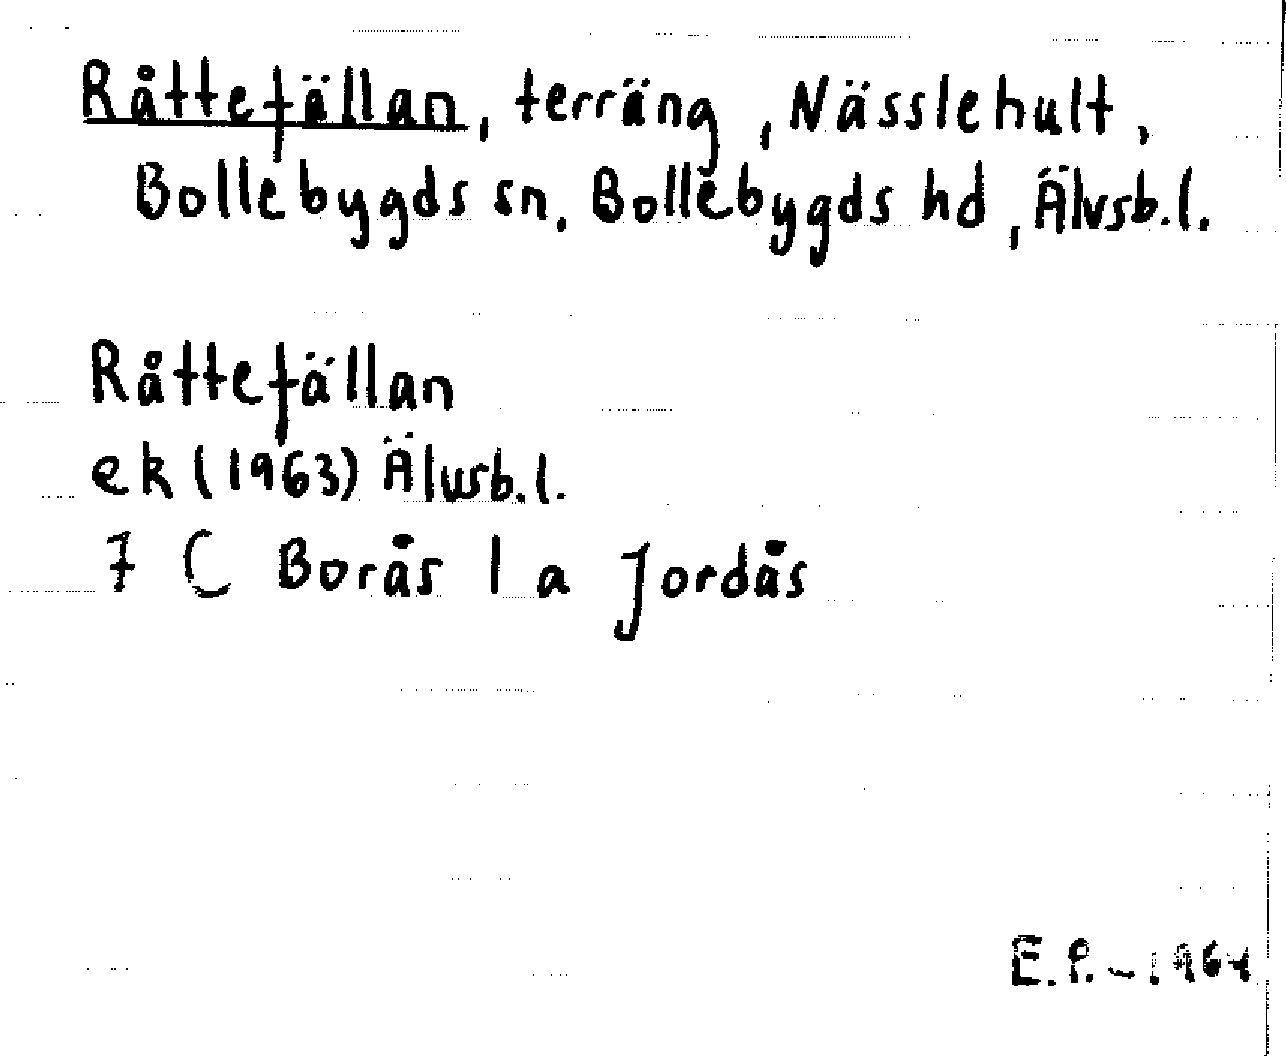 Råttefällan, terräng, Nässlehult,
Bollebygds sn, Bollebygds hd, Älvsb.l.
Råttefällan
ek (1963) Älvsb.l.
7 C Borås 1 a Jordås
E.P. - 1964